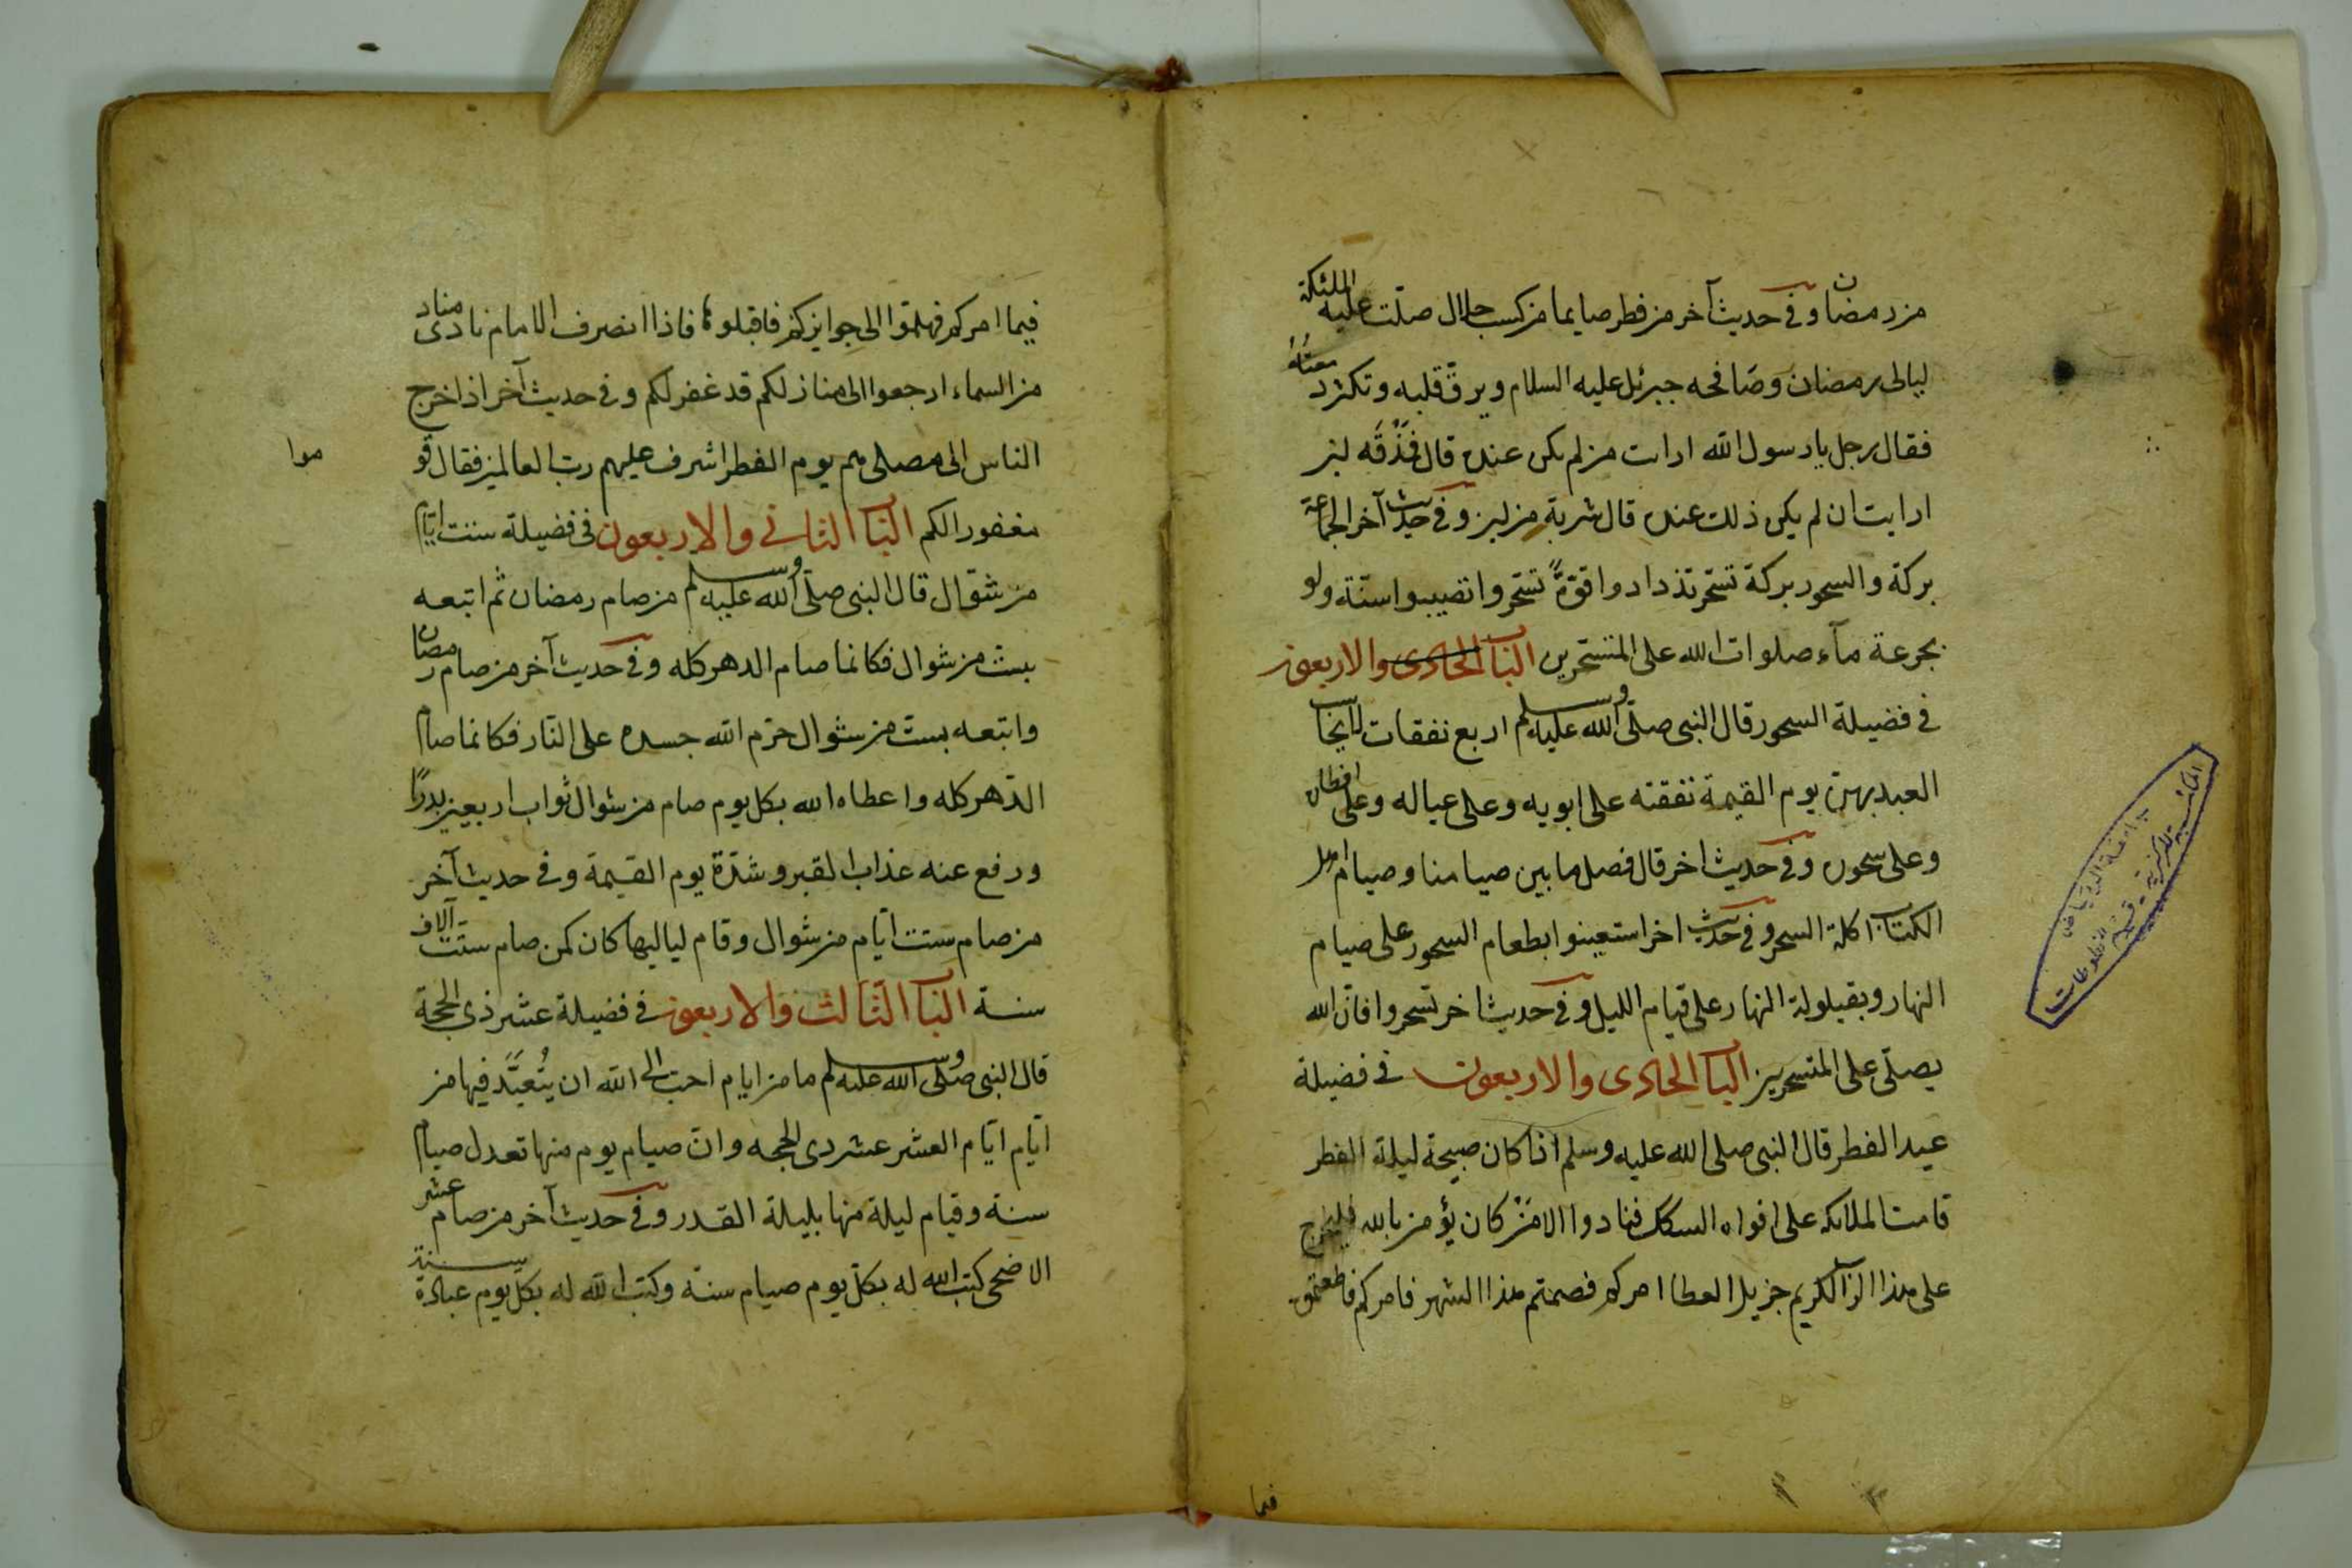 من رمضان وفي حديث آخر من فطر صايما من كسب حلال صلّت عليه الملئكة
ليالى رمضان وصافحه جبرئل عليه السلام ويرقّ قلبه وتكثر دمعته
فقال رجل يا رسول الله ارات من لم يكن عنده قال فَذُقَه لبن
ارايت ان لم يكن ذلك عنده قال شربة من لبن وفي حديث آخر الجماعة
بركة والسحور بركة تسحر تزدادوا قوّةً تسحروا تصيبوا سنّة ولو
بجرعة مآء صلوات الله على المتسحرين الباب الحادى والاربعون
في فضيلة السحور قال النبى صلّى الله عليه وسلم اربع نفقات لا يحاسب
العبد بهن يوم القيمة نفقته على ابويه وعلى عياله وعلى افطاره
وعلى سحوره وفي حديث اخر قال فصل ما بين صيامنا وصيام اهل
الكتاب اكلة السحر وفي حديث اخر استعينوا بطعام السحور على صيام
النهار وبقيلولة النهار على قيام الليل وفي حديث اخر تسحروا فانّ الله
يصلّى على المتسحرين الباب الحادى والاربعون في فضيلة
عيد الفطر قال النبى صلى الله عليه وسلم اذا كان صبيحة ليلة الفطر
قامت الملايكه على افواه السكك فنادوا الا مَنْ كان يؤمن بالله فليخرج
على هذا الرب الكريم جزيل العطا امركم فصمتم هذا الشهر فامركم فاطعتموه
فيما
فيما امركم فهلمّوا الى جوايزكم فاقبلوها فاذا انصرف الامام نادى مناد
من السماء ارجعوا الى منازلكم قد غفر لكم وفي حديث آخر اذا خرج
الناس الى مصلى هم يوم الفطر اشرف عليهم ربّ العالمين فقال قو
موا
مغفورا لكم الباب الثانى والاربعون في فضيلة ستت ايّام
من شوّال قال النبى صلّى الله عليه وسلم من صام رمضان ثم اتبعه
بست من شوال فكانما صام الدهر كله وفي حديث آخر من صام رمضان
واتبعه بست من شوال حرّم الله جسده على النار فكانما صام
الدّهر كله واعطاه الله بكل يوم صام من شوال ثواب اربعين بدرًا
ورفع عنه عذاب القبر وشدّة يوم القيمة وفي حديث آخر
من صام ستت ايّام من شوال وقام لياليها كان كمن صام ستّت آلاف
سنة الباب الثالث والاربعون في فضيلة عشر ذى الحجة
قال النبى صلّى الله عليه وسلم ما من ايام احبّ الى الله ان يُتعبَّد فيها من
ايّام ايّام العشر عشر ذى الحجه وانّ صيام يوم منها تعدل صيام
سنة وقيام ليلة منها بليلة القدر وفي حديث آخر من صام عشر
الاضحى كتب الله له بكلّ يوم صيام سنة وكتب الله له بكلّ يوم عبادة سنة